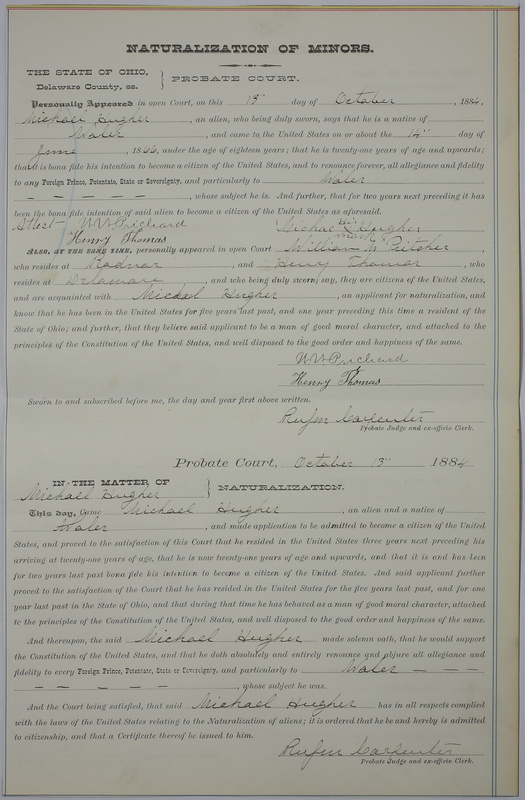 NATURALIZATION OF MINORS.
THE STATE OF OHIO,
Delaware County, ss.
PROBATE COURT.
Personally Appeared in open Court, on this 13" day of October, 1884,
Michael Hugher, an alien, who being duly sworn, says that he is a native of
Wales, and came to the United States on or about the 14" day of
June, 1866, under the age of eighteen years; that he is twenty-one years of age and upwards;
that it is bona fide his intention to become a citizen of the United States, and to renounce forever, all allegiance and fidelity
to any Foreign Prince, Potentate, State or Sovereignty, and particularly to Wales
— — — — — —, whose subject he is. And further, that for two years next preceding it has
been the bona fide intention of said alien to become a citizen of the United States as aforesaid.
Attest W W Prichard Michael his X mark Hugher
Henry Thomas
ALSO, AT THE SAME TIME, personally appeared in open Court William W Pritcher,
who resides at Radnor, and Henry Thomas, who
resides at Delaware, and who being duly sworn, say, they are citizens of the United States,
and are acquainted with Michael Hugher, an applicant for naturalization, and
know that he has been in the United States for five years last past, and one year preceding this time a resident of the
State of Ohio; and further, that they believe said applicant to be a man of good moral character, and attached to the
principles of the Constitution of the United States, and well disposed to the good order and happiness of the same.
W W Prichard
Henry Thomas
Sworn to and subscribed before me, the day and year first above written.
Rufus Carpenter
Probate Judge and ex-officio Clerk.
Probate Court, October 13" 1884
IN THE MATTER OF
Michael Hugher
NATURALIZATION.
This day, Came Michael Hugher, an alien and a native of
Wales, and made application to be admitted to become a citizen of the United
States, and proved to the satisfaction of this Court that he resided in the United States three years next preceding his
arriving at twenty-one years of age, that he is now twenty-one years of age and upwards, and that it is and has been
for two years last past bona fide his intention to become a citizen of the United States. And said applicant further
proved to the satisfaction of the Court that he has resided in the United States for the five years last past, and for one
year last past in the State of Ohio, and that during that time he has behaved as a man of good moral character, attached
to the principles of the Constitution of the United States, and well disposed to the good order and happiness of the same.
And thereupon, the said Michael Hugher made solemn oath, that he would support
the Constitution of the United States, and that he doth absolutely and entirely renounce and abjure all allegiance and
fidelity to every Foreign Prince, Potentate, State or Sovereignty, and particularly to Wales — — —
— — — — — —, whose subject he was.
And the Court being satisfied, that said Michael Hugher has in all respects complied
with the laws of the United States relating to the Naturalization of aliens; it is ordered that he be and hereby is admitted
to citizenship, and that a Certificate thereof be issued to him.
Rufus Carpenter
Probate Judge and ex-officio Clerk.